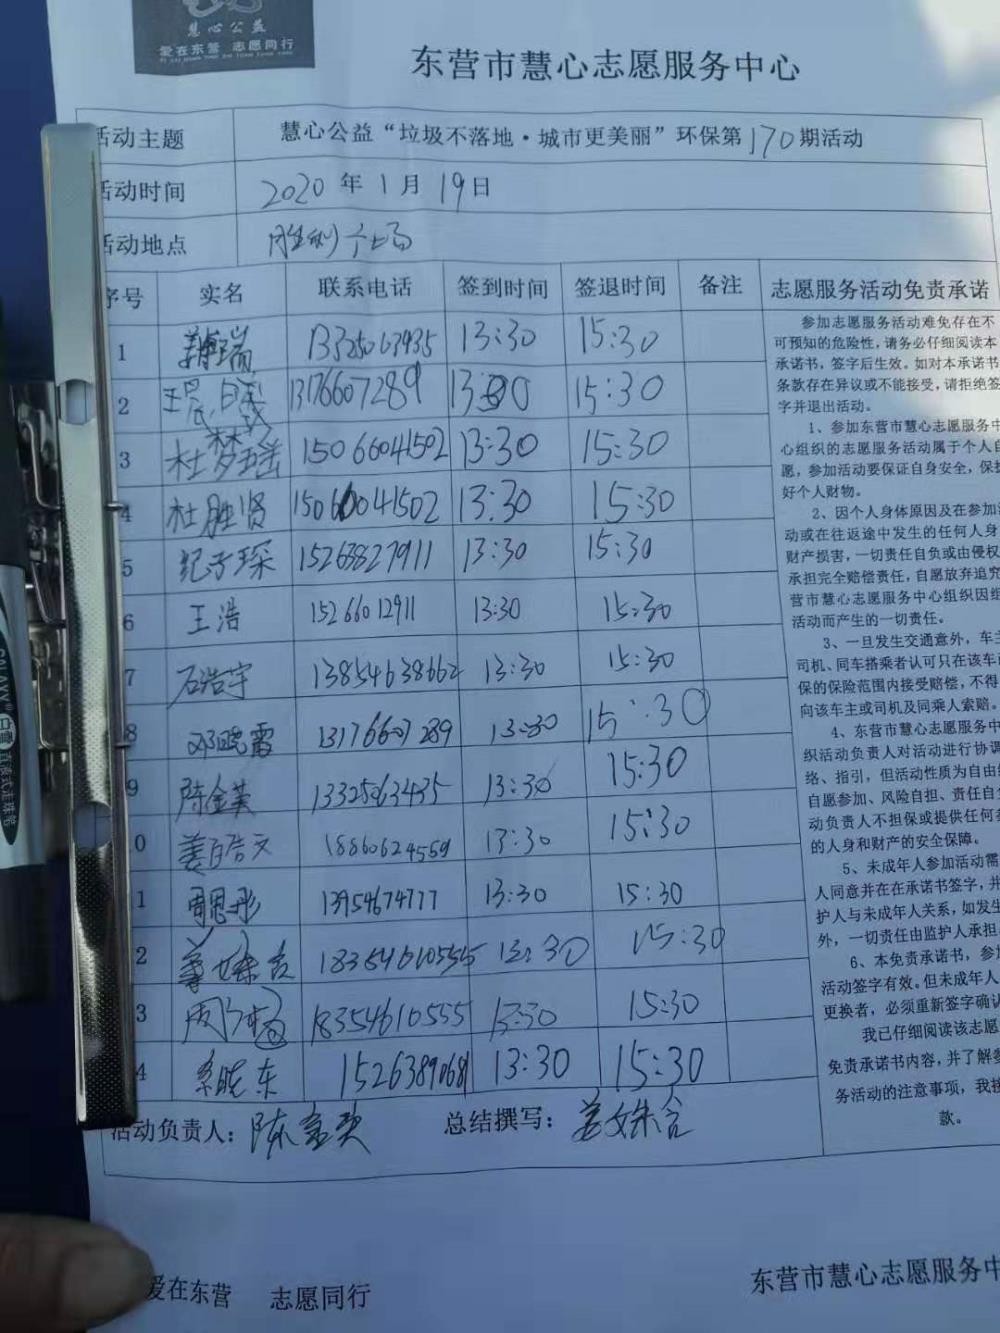 慧心公益
爱在东营 志愿同行
东营市慧心志愿服务中心
活动主题 慧心公益“垃圾不落地·城市更美丽”环保第170期活动
活动时间 2020年1月19日
活动地点 胜利广场
序号 实名 联系电话 签到时间 签退时间 备注 志愿服务活动免责承诺
1 13:30 15:30
2 13176607289 13:30 15:30
3 杜梦瑶 15066041502 13:30 15:30
4 杜胜贤 15066041502 13:30 15:30
5 纪子琛 15263827911 13:30 15:30
6 王浩 15266012911 13:30 15:30
7 石浩宇 13854638662 13:30 15:30
8 邓晓雷 13176607289 13:30 15:30
9 陈金英 13325063435 13:30 15:30
0 姜皓文 18860624559 13:30 15:30
1 周思彤 13954674777 13:30 15:30
2 18354610555 13:30 15:30
3 18354610555 13:30 15:30
4 晓东 15:30 13:30
参加志愿服务活动难免存在不
可预知的危险性，请务必仔细阅读本
承诺书，签字后生效。如对本承诺书
条款存在异议或不能接受，请拒绝签
字并退出活动。
1、参加东营市慧心志愿服务中
心组织的志愿服务活动属于个人自
愿，参加活动要保证自身安全，保护
好个人财物。
2、因个人身体原因及在参加活
动或在往返途中发生的任何人身
财产损害，一切责任自负或由侵权
承担完全赔偿责任，自愿放弃追究
营市慧心志愿服务中心组织因组
活动而产生的一切责任。
3、一旦发生交通意外，车主
司机、同车搭乘者认可只在该车
保的保险范围内接受赔偿，不得
向该车主或司机及同乘人索赔。
4、东营市慧心志愿服务中
织活动负责人对活动进行协调
络、指引，但活动性质为自由
自愿参加、风险自担、责任自
动负责人不担保或提供任何
的人身和财产的安全保障。
5、未成年人参加活动需
人同意并在在承诺书签字，并
护人与未成年人关系，如发生
外，一切责任由监护人承担
6、本免责承诺书，参加
活动签字有效。但未成年人
更换者，必须重新签字确认
我已仔细阅读该志愿
免责承诺书内容，并了解参
务活动的注意事项，我接
款。
活动负责人：陈金英 总结撰写：姜姝含
爱在东营 志愿同行 东营市慧心志愿服务中
白雪 直液式走珠笔